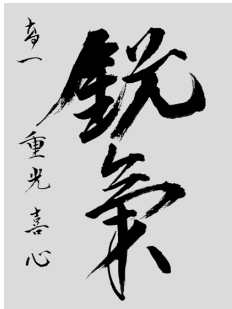 鋭氣
高一 重光喜心